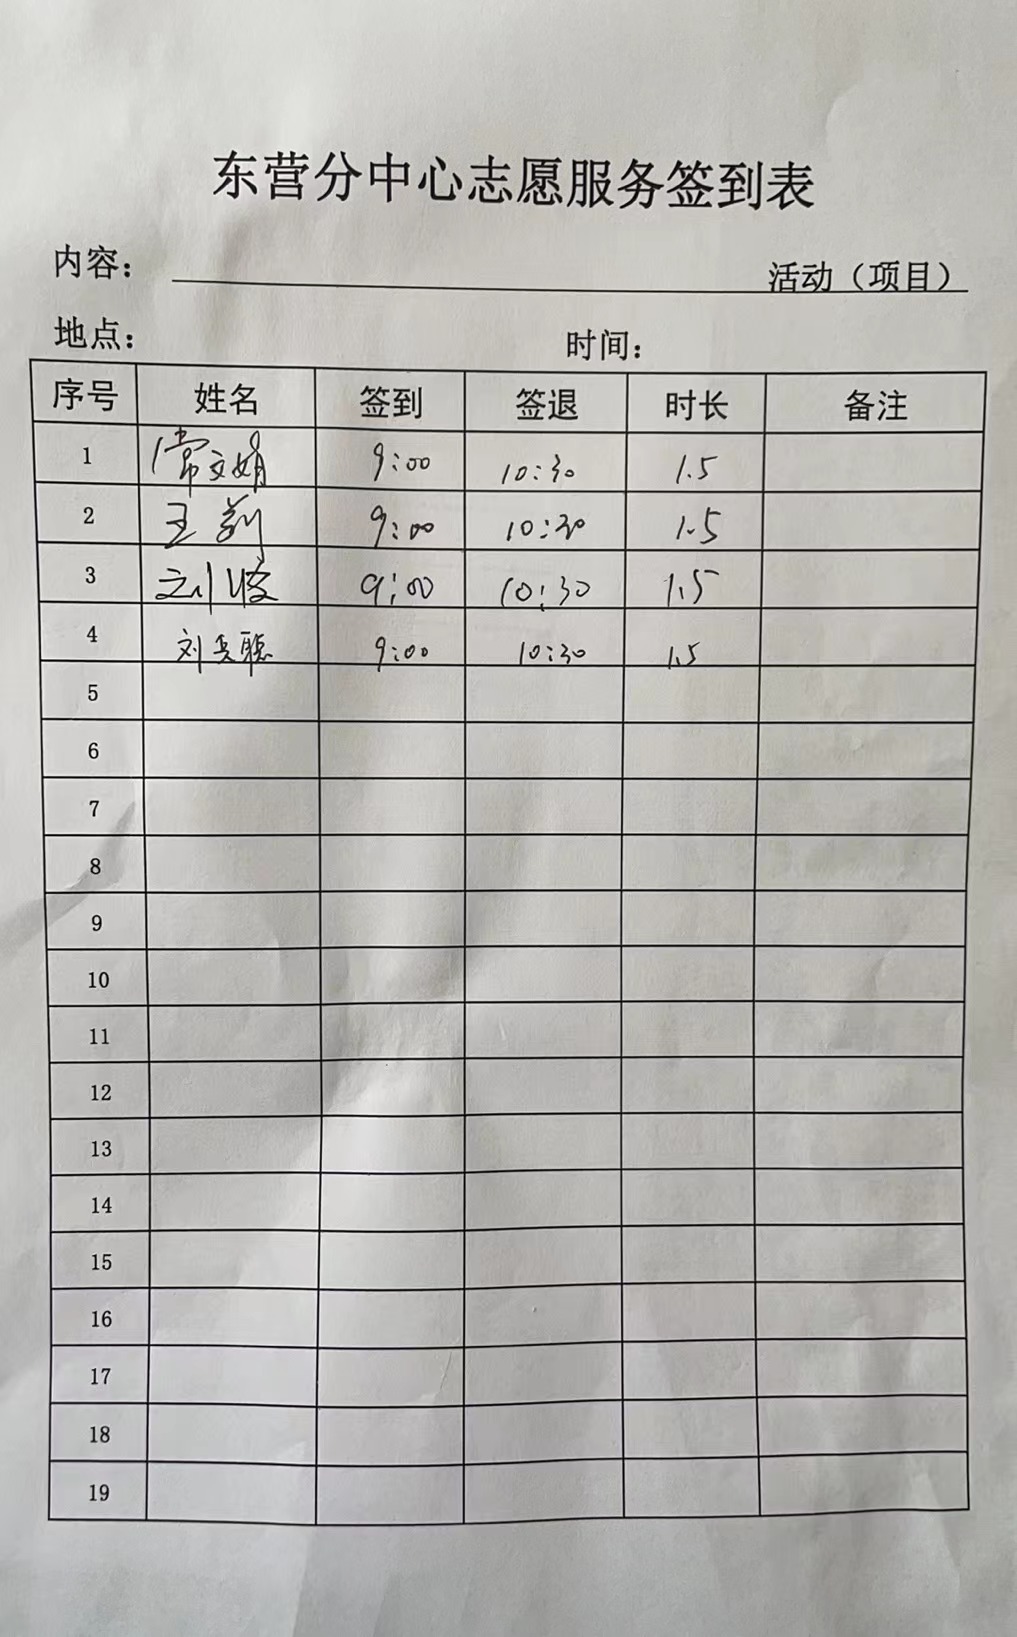 东营分中心志愿服务签到表
内容： 活动（项目）
地点： 时间：
序号 姓名 签到 签退 时长 备注
1 常文娟 9:00 10:30 1.5
2 王莉 9:00 10:30 1.5
3 刘波 9:00 10:30 1.5
4 刘 聪 9:00 10:30 1.5
5
6
7
8
9
10
11
12
13
14
15
16
17
18
19